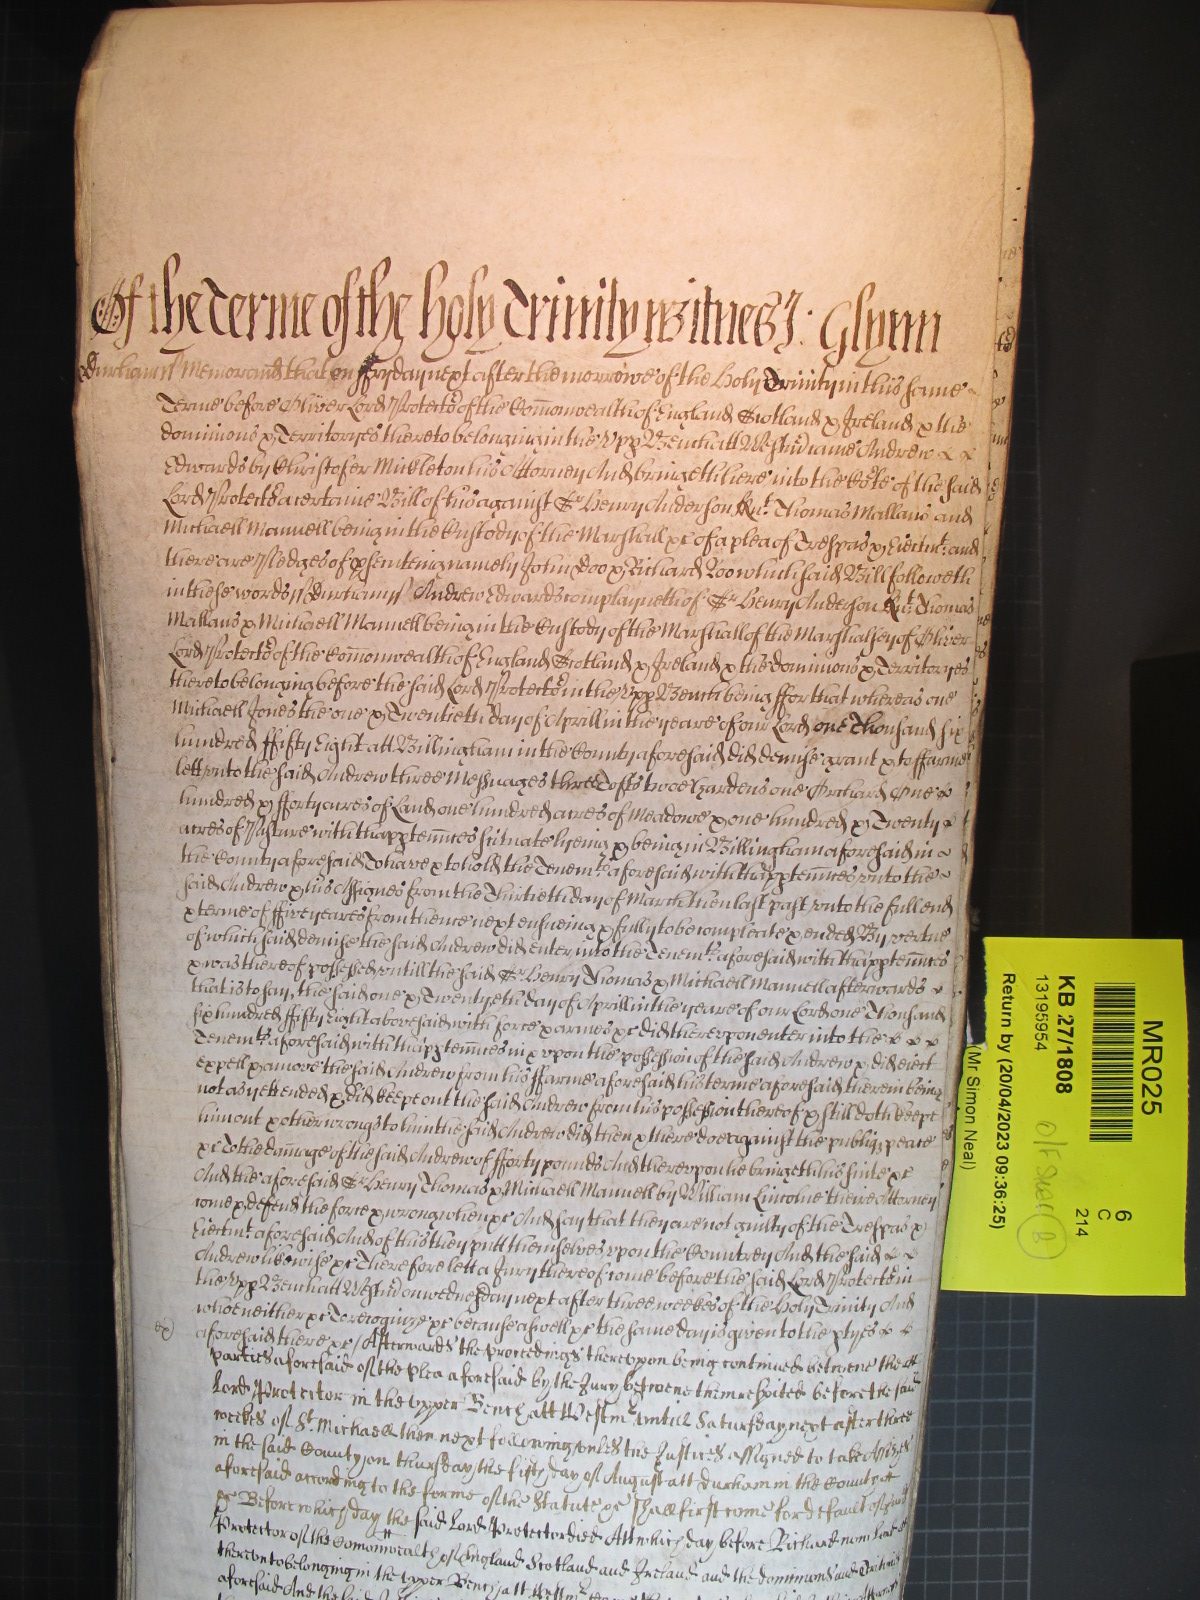 Of the Terme of the Holy Trinity Witnes J: Glynn
Durham ss Memorand that on ffryday next after the morrowe of the Holy Trinity in this same
Terme before Oliver Lord Protector of the Comonwealth of England Scotland & Ireland & the
dominions & Territoryes thereto belonging in the Upp Bench att Westmr came Andrew
Edwards by Christofer Mickleton his Attorney And bringeth here into the Cote of the said
Lord Protector a certaine Bill of his against Sr Henry Anderson Knt. Thomas Mallaus and
Michaell Mannell being in the Custody of the Marshall &c of a plea of Trespas & Eiectmt. and
there are Pledges of psenteing namely John Doo & Richard Roo which said Bill followeth
in these words ss Durham ss Andrew Edwards complayneth of Sr Henry Anderson Knt. Thomas
Mallaus & Michaell Mannell being in the Custody of the Marshall of the Marshalsey of Oliver
Lord Protector of the Comonwealth of England Scotland & Ireland & the dominions & Territoryes
thereto belonging before the said Lord Protector in the Upp Bench being ffor that whereas one
Michaell Jones the one & Twentieth day of Aprill in the yeare of our Lord one Thousand six
hundred ffifty Eight att Billingham in the County aforesaid did demise grant & to ffarme
lett unto the said Andrew three Messuages three Tofts twoe Gardens one Orchard One
hundred & fforty acres of Land one hundred acres of Meadowe & one hundred & Twenty
acres of Pasture with thapptenncs situate lyeing & being in Billingham aforesaid in
the County aforesaid To have & to hold the Tenemts aforesaid with thapptennces unto the
said Andrew & his Assignes from the Thirtieth day of March then last past unto the full end
& terme of ffive yeares from thence next ensueing & fully to be compleate & ended By vertue
of which said demise the said Andrew did enter into the Tenemts. aforesaid with thapptennces
& was thereof possessed untill the said Sr Henry Thomas & Michaell Mannell afterwards
that is to say, the said one & Twentyeth day of Aprill in the yeare of our Lord one Thousand
six hundred ffifty Eight abovesaid with force & armes &c did thereupon enter into the
Tenemts. aforesaid with thapptennces in & upon the possession of the said Andrew & did eiect
expell & amove the said Andrew from his ffarme aforesaid his terme aforesaid therein being
not as yet ended & did keepe out the said Andrew from his possession thereof & still doth keepe
him out & other wrongs to him the said Andrew did then & there doe against the publiq peace
&c To the damage of the said Andrew of fforty pounds And thereupon he bringeth his suite &c
And the aforesaid Sr Henry Thomas & Michaell Mannell by William Lincolne theire Attorney
come & defend the force & wrong when &c And say that they are not guilty of the Trespas &
Eiectmt. aforesaid And of this they putt themselves upon the Countrey And the said
Andrew likewise &c Therefore lett a Jury thereof come before the said Lord Protector in
the Upp Bench att Westmr on wednesday next after three weekes of the Holy Trinity And
who neither &c To recognize &c because aswell &c the same day is given to the ptyes
aforesaid there &c / Afterwards the proceedings thereupon being continued betweene the
parties aforesaid of the plea aforesaid by the Jury betweene them respited before the said
Lord Protector in the upper Bench att Westmr untill Saturday next after three
weekes of St. Michaell then next following unles the Justices assigned to take Assizes
in the said County on thursday the fifth day of August att Durham in the County
aforesaid according to the forme of the Statute &c shall first come for default of
&c Before which day the said Lord Protector died Att which day before Richard now Lord
Protector of the Comonwealth of England Scotland and Ireland and the dominions and
thereunto belonging in the upper Bench att Westmr
aforesaid And the said
MR025
6
C
214
KB 27/1808
13195954
Return by (20/04/2023 09:36:25)
(Mr Simon Neal)